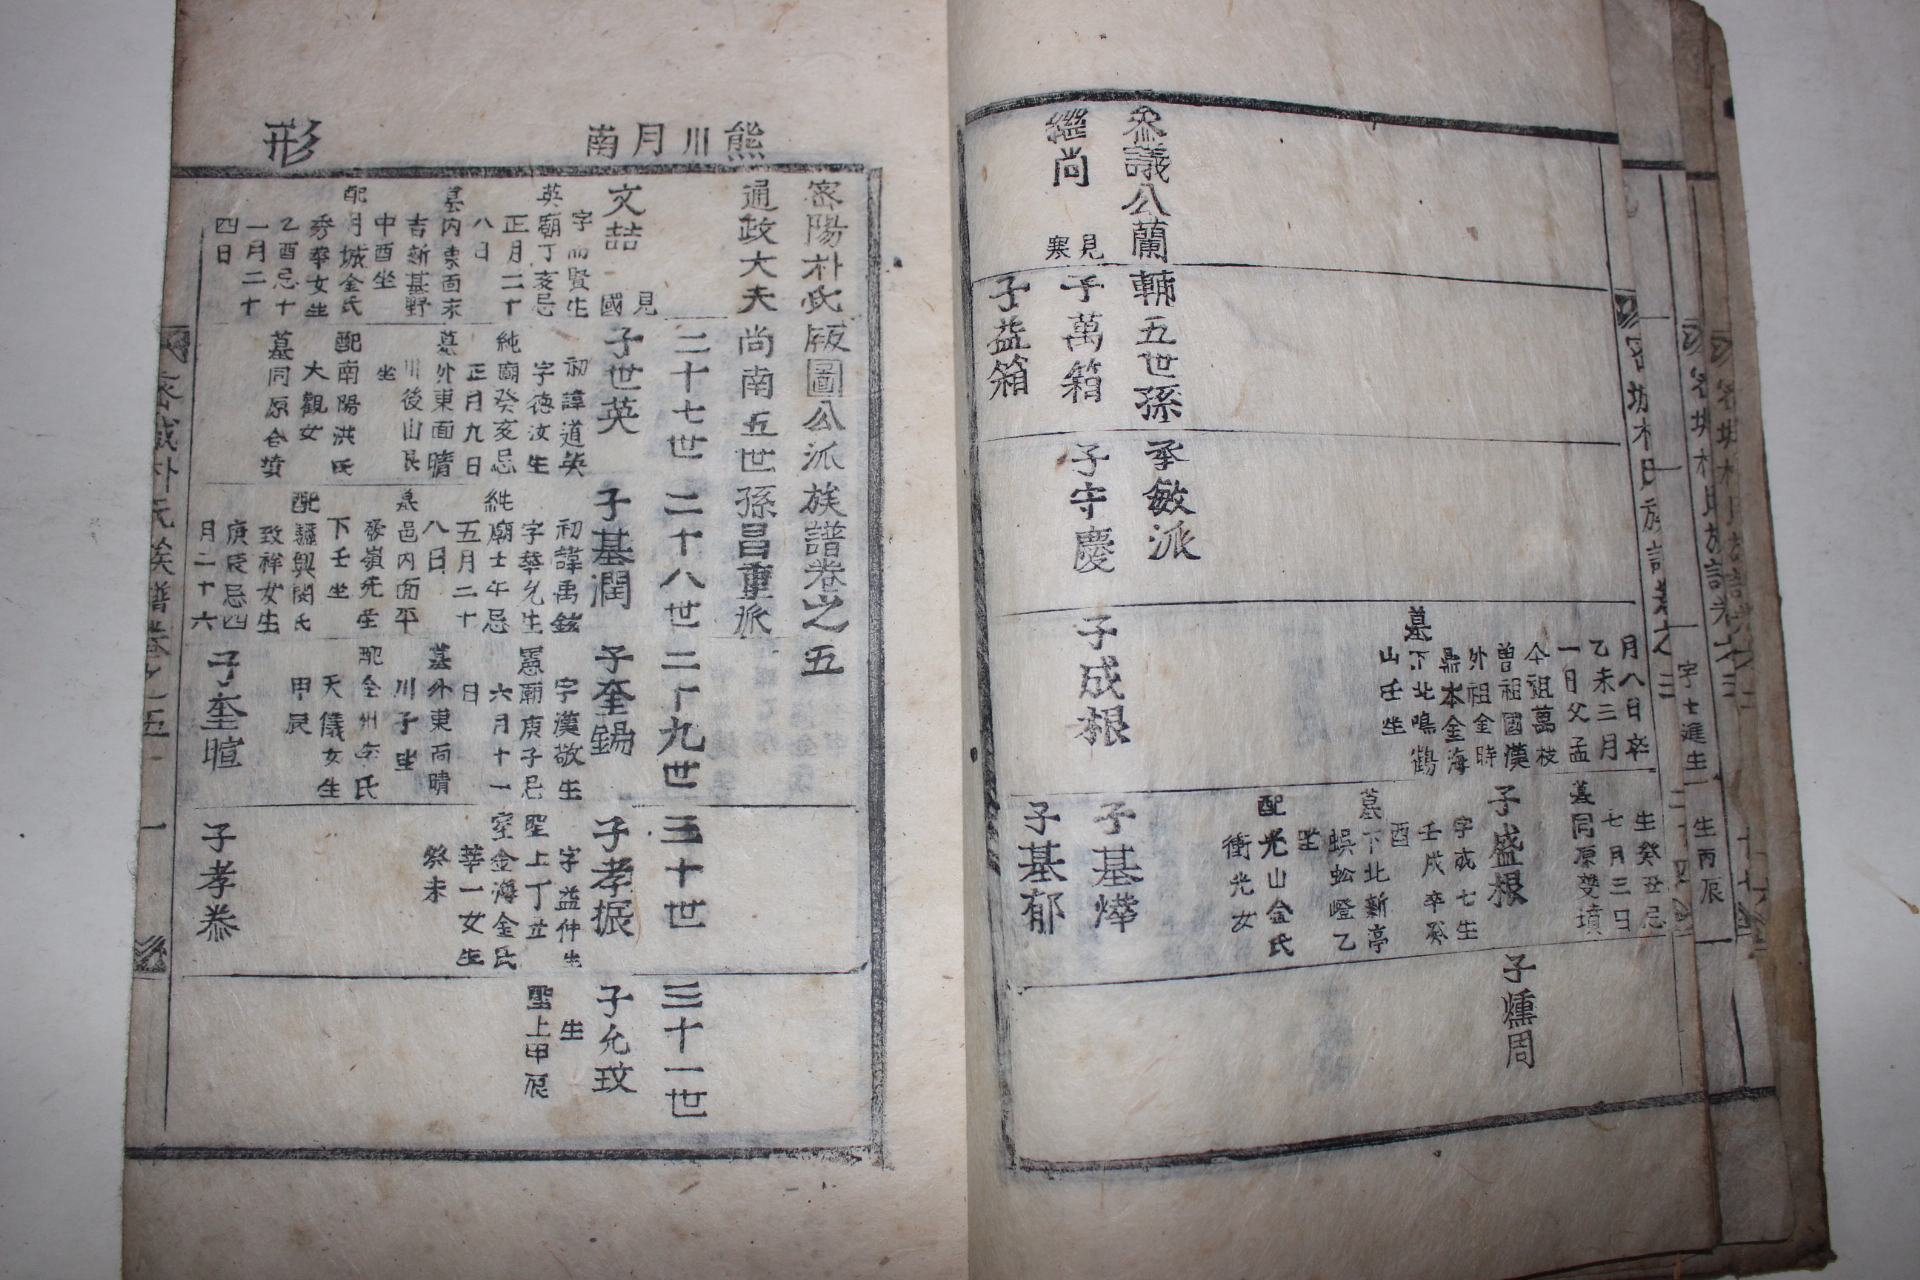 叅議公蘭輔五世孫承敏派
繼尚
見
寒
子萬箱
子守慶
子成根
子基燁
子益箱
子基郁
月八日卒
乙未三月
一日父孟
仝祖萬枝
曽祖國僕
外祖金時
鼎本金海
墓下北鳴鶴
山壬坐
生癸丑忌
七月三日
墓同原雙墳
子盛根
字成七生
壬戌卒癸
酉
墓下北新亭
蜈蚣嶝乙
坐
配光山金氏
衝光女
子燻周
熊川月南
形
密陽朴氏版圖公派族譜卷之五
通政大夫尚南五世孫昌重派
二十七世
二十八世
二十九世
三十世
三十一世
文喆
見
國
字而賢生
英廟丁亥忌
正月二十
八日
墓内東面末
吉新基野
中酉坐
配月城金氏
秀華女生
乙酉忌十
一月二十
四日
子世英
初諱道英
字德汝生
純廟癸亥忌
正月九日
墓外東面晴
川後山艮
坐
配南陽洪氏
大觀女
墓同原合墳
子基潤
初諱禹鉉
字華允生
純廟壬午忌
五月二十
八日
墓邑内面平
下壬坐
配驪興閔氏
致祥女生
庚辰忌四
月二十六
子奎錫
字漢敬生
憲廟庚子忌
六月十一
日
墓外東面晴
川子坐
配全州李氏
天儀女生
甲辰
子奎暄
子孝振
字益仲生
聖上丁丑
室金海金氏
華一女生
癸未
子孝㳟
子允玟
生
聖上甲辰
密城朴氏族譜卷之五
一